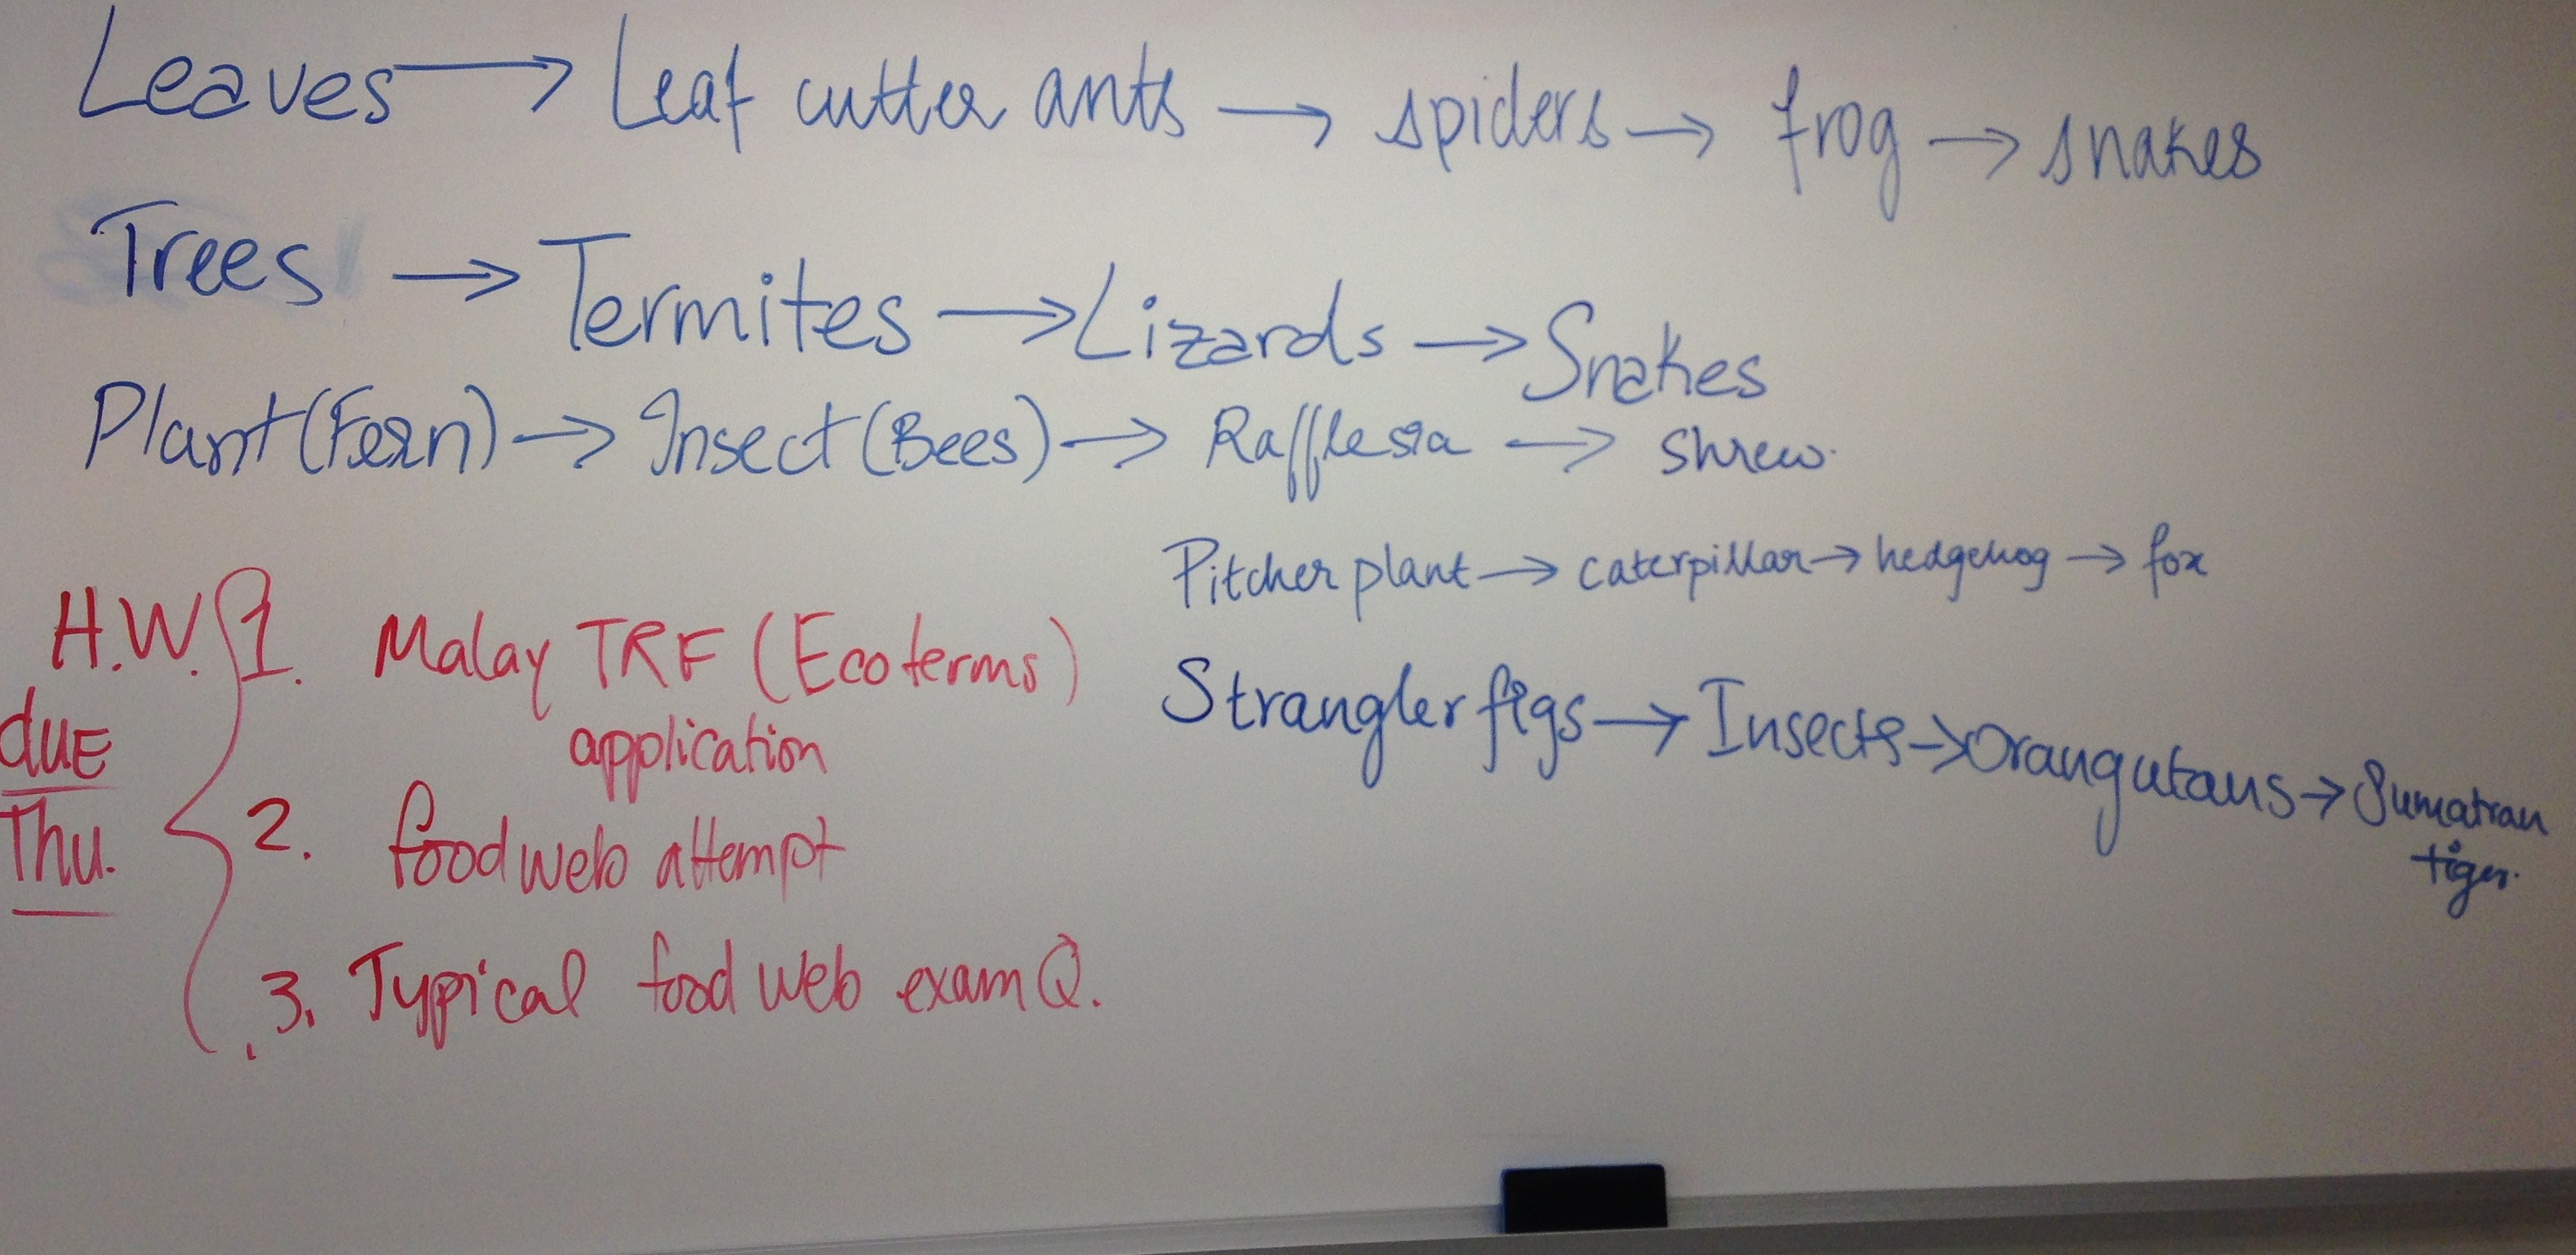 Leaves → Leaf cutter ants → spiders → frog → snakes
Trees → Termites → Lizards → Snakes
Plant (Fern) → Insect (Bees) → Rafflesia → shrew.
Pitcher plant → caterpillar → hedgehog → fox
Strangler figs → Insects → Orangutans → Sumatran
tiger.
H.W. 1. Malay TRF (Eco terms)
application
due
Thu.
2. food web attempt
3. Typical food web exam Q.